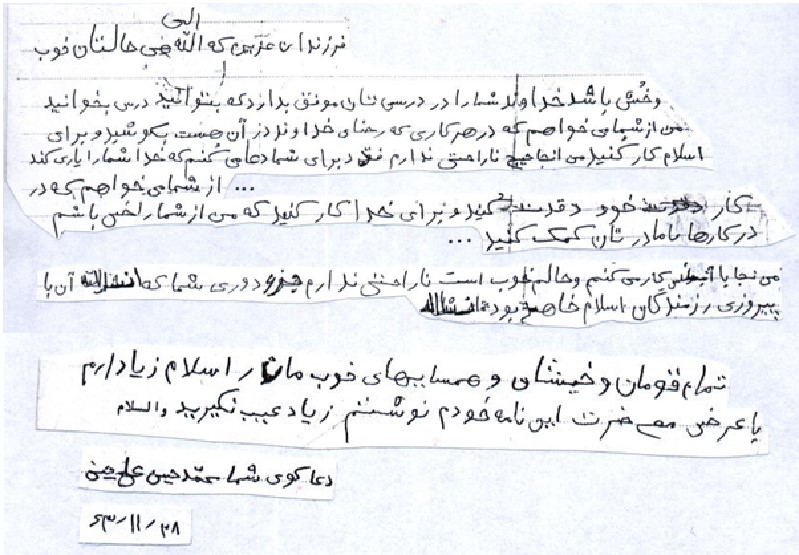 الی
فرزندان عزیزم که الله حالتان خوب
وخش باشد خداوند شما را در درسی تان موفق بدارد که بتوانید درس بخوانید
من از شما می خواهم که در هر کاری که رضای خداوند در آن هست بکوشید و برای
اسلام کار کنید من انجا هیچ ناراحتی ندارم فقد برای شما دعا می کنم که خدا شما را یاری کند
... از شما می خواهم که در
کار خود دقت کنید و برای خدا کار کنید که من از شما راضی باشم
در کارها با مادرتان کمک کنید ...
من نجا با کار می کنم و حالم خوب است ناراحتی ندارم جزء دوری شما که انشالله آن با
پیروزی رزمندگان اسلام خاهد بود انشالله
تمام قومان و خیشان و همسایهای خوب مان را سلام زیاد دارم
با عرض معضرت این نامه خودم نوشتم زیاد عیب نگیرید والسلام
دعا گوی شما محمد حسین علی
۶۳/۱۱/۲۸